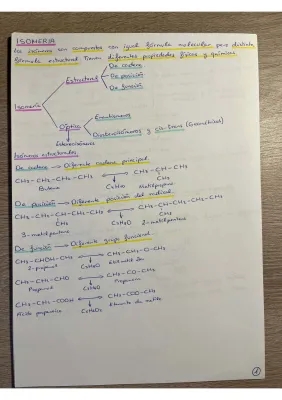 ISOMERIA
Los isómeros son compuestos con igual fórmula molecular pero distinta
fórmula estructural. Tienen diferentes propiedades físicas y químicas.
De cadena
Estructural
De posición
De función
Isomería
Enantiómeros
Óptica
Diastereoisómeros y cis-trans (Geométricos)
Estereoisómeros
Isómeros estructurales
De cadena → Diferente cadena principal.
CH₃-CH₂-CH₂-CH₃ ↔ CH₃-CH-CH₃
CH₃
Butano
De posición → Diferente posición del radical.
CH₃-CH₂-CH-CH₂-CH₃ ↔ CH₃-CH-CH₂-CH₂-CH₃
CH₃ CH₃
3-metilpentano 2-metilpentano
De función → Diferente grupo funcional
CH₃-CHOH-CH₃ ↔ CH₃-CH₂-O-CH₃
2-propanol C₃H₈O
CH₃-CH₂-CHO ↔ CH₃-CO-CH₃
Propanal C₃H₆O Propanona
CH₃-CH₂-COOH ↔ CH₃-COO-CH₃
Ácido propanoico C₃H₆O₂ Etanoato de metilo
1